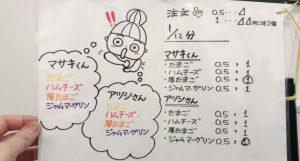 注文 0.5…△
1…△△同じ味2個
1/12分
マサキくん
たまご
ハムチーズ
厚たまご
ジャムマーガリン
アツシさん
たまご
ハムチーズ
厚たまご
ジャムマーガリン
マサキくん
・たまご 0.5, 1
・ハムチーズ 0.5, 1
・厚たまご 0.5, 1
・ジャムマーガリン 0.5, 1
アツシさん
・たまご 0.5, 1
・ハムチーズ 0.5, 1
・厚たまご 0.5, 1
・ジャムマーガリン 0.5, 1